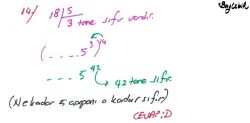 Baylewik
14/ 18 | 5
3 tane sıfır vardır.
(....5³)¹⁴
....5⁴² → 42 tane sıfır.
(Ne kadar 5 çarpanı o kadar sıfır)
CEVAP: D